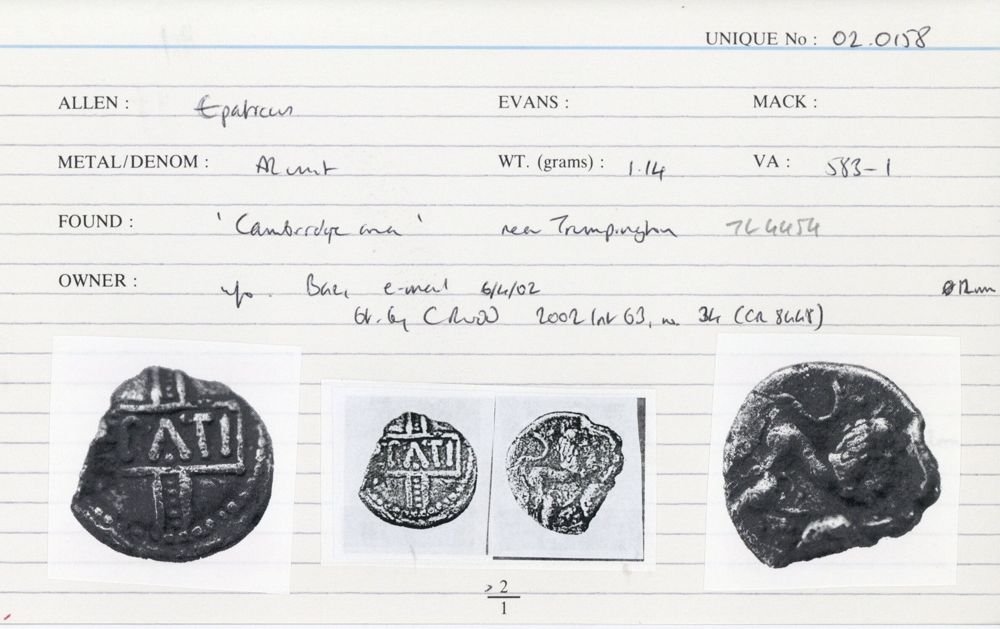 UNIQUE No : 02.0158
ALLEN : Epaticus EVANS : MACK :
METAL/DENOM : AR unit WT. (grams) : 1.14 VA : 583-1
FOUND : 'Cambridge area' near Trumpington TL 4454
OWNER : e-mail 6/4/02 ø12mm
2002 list 63, no. 34 (CR 8448)
ATI
ATI
> 2
1